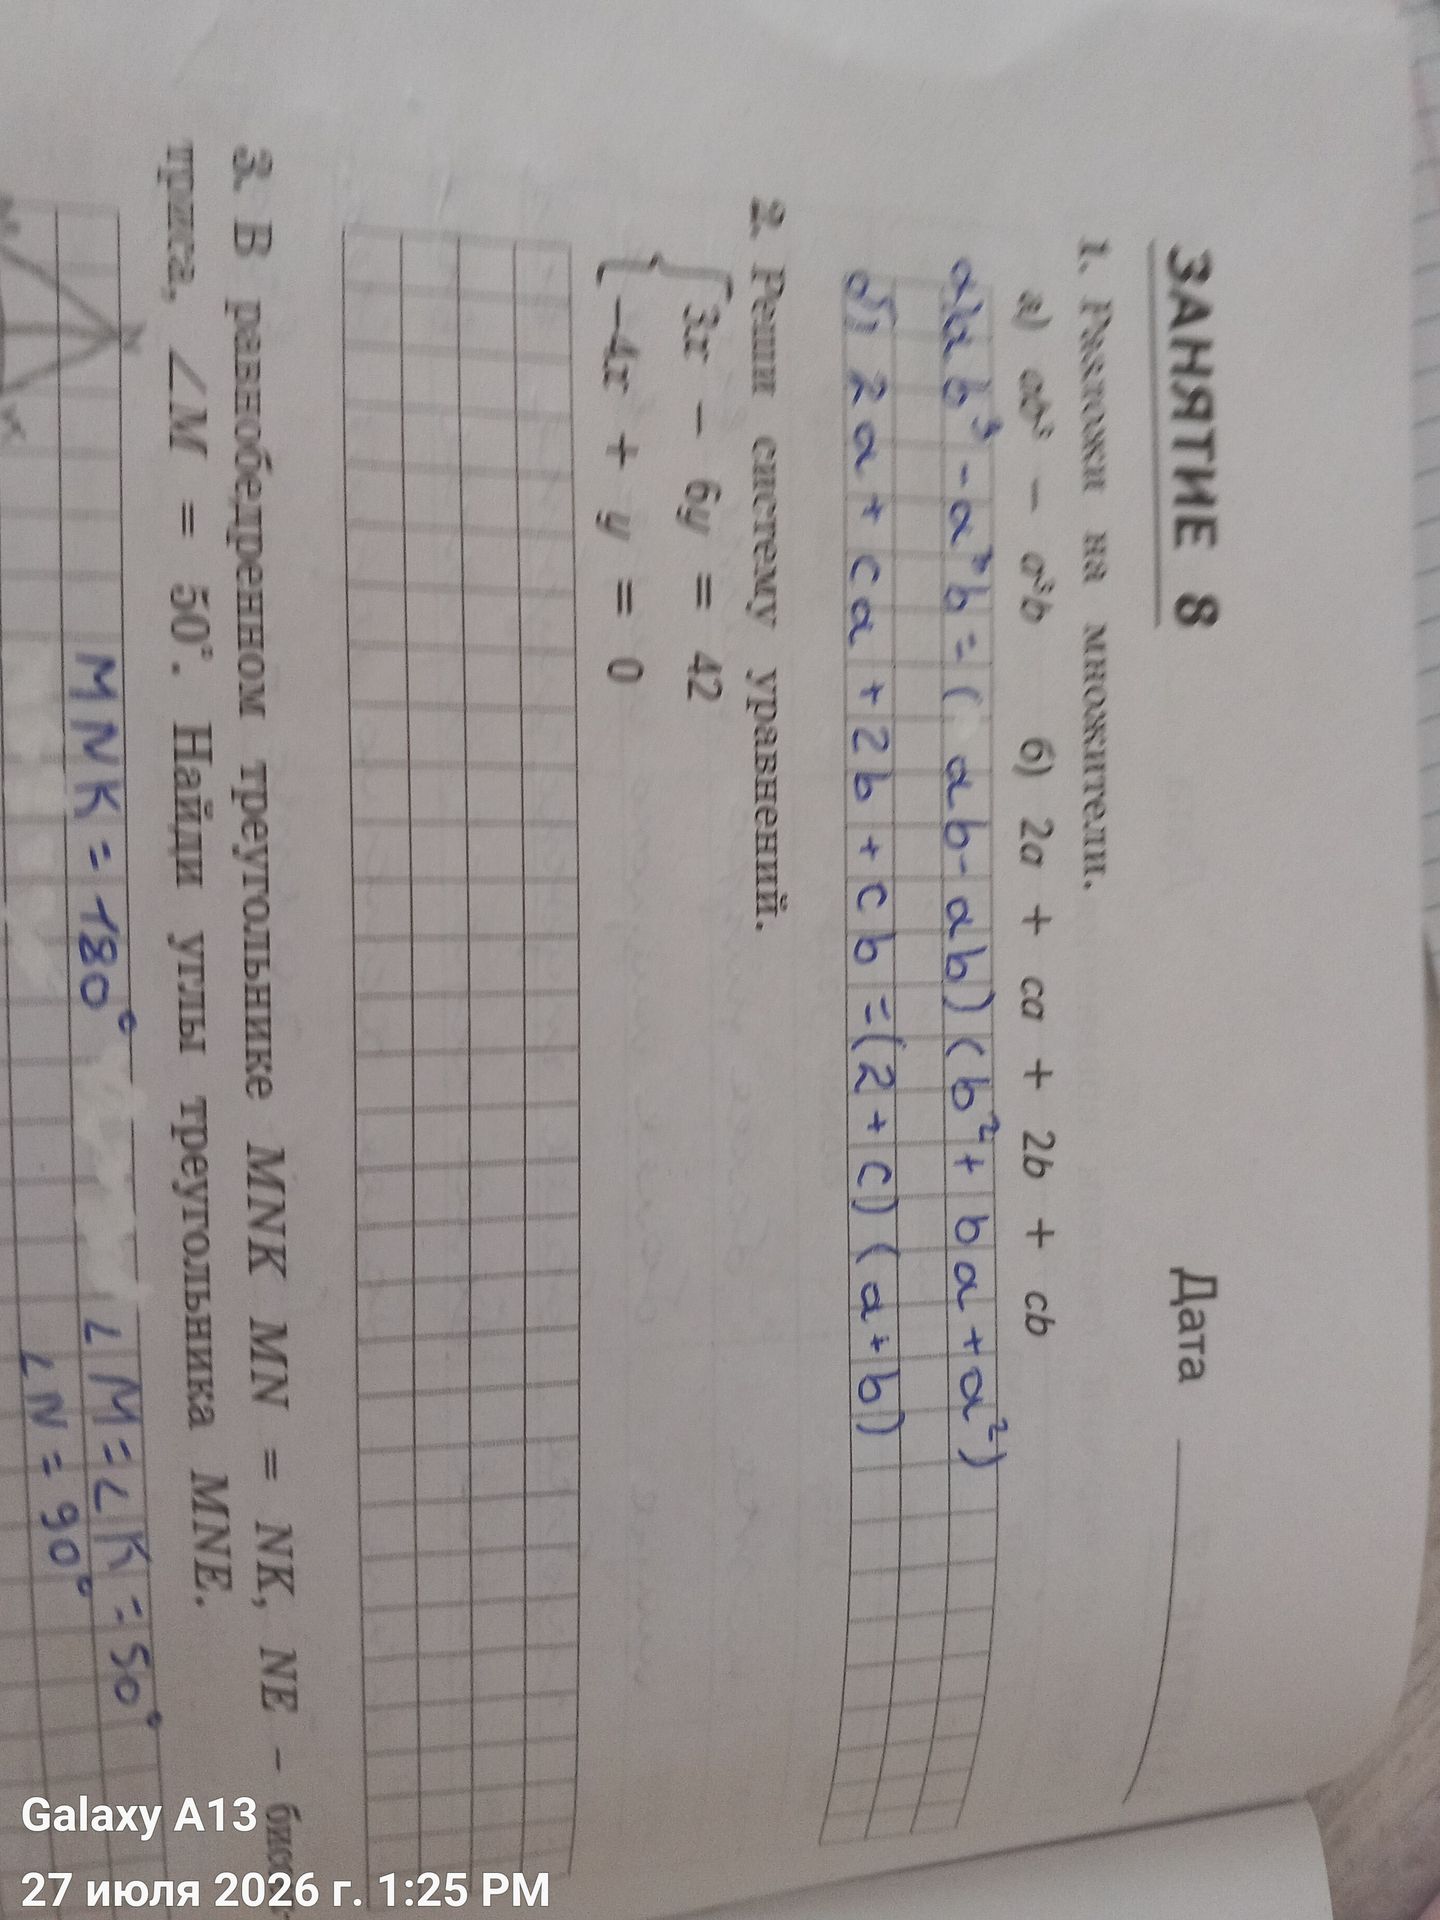 ЗАНЯТИЕ 8 Дата
1. Разложи на множители.
а) ab³ − a³b б) 2a + ca + 2b + cb
а) ab³ - a³b = ( ab - ab) (b² + ba + a²)
б) 2a + ca + 2b + cb = (2 + c) (a + b)
2. Реши систему уравнений.
3x − 6y = 42
−4x + y = 0
3. В равнобедренном треугольнике MNK MN = NK, NE –
триса, ∠M = 50°. Найди углы треугольника MNE.
N
MNK = 180° ∠M = ∠K = 50°
K
∠N = 90°
Galaxy A13
27 июля 2026 г. 1:25 PM